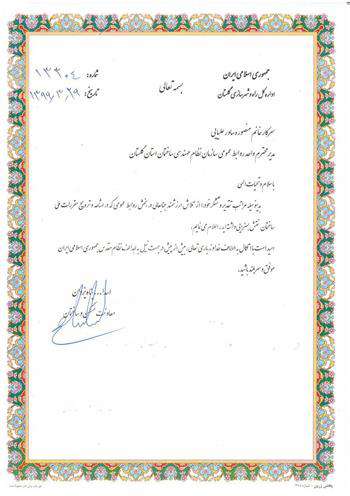 جمهوری اسلامی ایران
اداره کل راه و شهرسازی گلستان
بسمه تعالی
شماره: ۱۳۳۰۴
تاریخ: ۱۳۹۹/۳/۲۹
سرکار خانم منصوره ساور علیایی
مدیر محترم واحد روابط عمومی سازمان نظام مهندسی ساختمان استان گلستان
با سلام و تحیات الهی
بدینوسیله مراتب تقدیر و تشکر خود را از تلاش ارزشمند جنابعالی در بخش روابط عمومی که در اشاعه و ترویج مقررات ملی
ساختمان نقش بسزایی داشته اید، اعلام می نمایم.
امید است با اتکال به الطاف خداوند باری تعالی، بیش از پیش در جهت نیل به اهداف نظام مقدس جمهوری اسلامی ایران
موفق و سربلند باشید.
معاونت و ساختمان